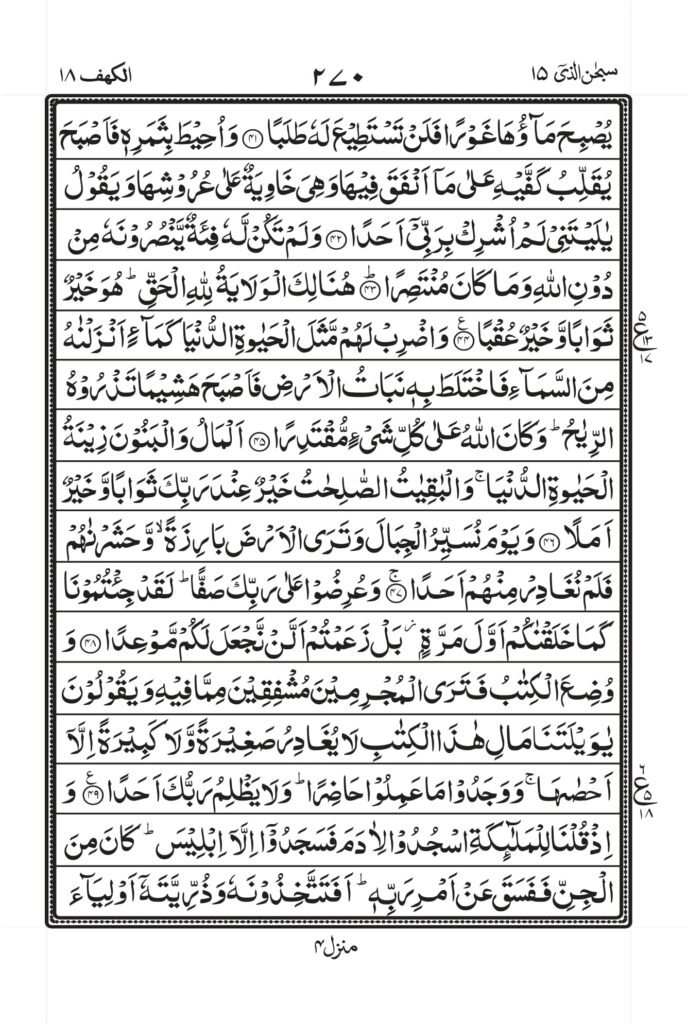 سبحٰن الذیٓ ۱۵
۲۷۰
الکهف ۱۸
یُصْبِحَ مَآؤُهَا غَوْرًا فَلَنْ تَسْتَطِیْعَ لَهٗ طَلَبًا ﴿۴۱﴾ وَاُحِیْطَ بِثَمَرِهٖ فَاَصْبَحَ
یُقَلِّبُ كَفَّیْهِ عَلٰی مَاۤ اَنْفَقَ فِیْهَا وَهِیَ خَاوِیَةٌ عَلٰی عُرُوْشِهَا وَیَقُوْلُ
یٰلَیْتَنِیْ لَمْ اُشْرِكْ بِرَبِّیْۤ اَحَدًا ﴿۴۲﴾ وَلَمْ تَكُنْ لَّهٗ فِئَةٌ یَّنْصُرُوْنَهٗ مِنْ
دُوْنِ اللّٰهِ وَمَا كَانَ مُنْتَصِرًا ﴿۴۳﴾ؕ هُنَالِكَ الْوَلَایَةُ لِلّٰهِ الْحَقِّ ؕ هُوَ خَیْرٌ
ثَوَابًا وَّخَیْرٌ عُقْبًا ﴿۴۴﴾ع وَاضْرِبْ لَهُمْ مَّثَلَ الْحَیٰوةِ الدُّنْیَا كَمَآءٍ اَنْزَلْنٰهُ
۵ ع ۱۳ ۱۷
مِنَ السَّمَآءِ فَاخْتَلَطَ بِهٖ نَبَاتُ الْاَرْضِ فَاَصْبَحَ هَشِیْمًا تَذْرُوْهُ
الرِّیٰحُ ؕ وَكَانَ اللّٰهُ عَلٰی كُلِّ شَیْءٍ مُّقْتَدِرًا ﴿۴۵﴾ اَلْمَالُ وَالْبَنُوْنَ زِیْنَةُ
الْحَیٰوةِ الدُّنْیَا ۚ وَالْبٰقِیٰتُ الصّٰلِحٰتُ خَیْرٌ عِنْدَ رَبِّكَ ثَوَابًا وَّخَیْرٌ
اَمَلًا ﴿۴۶﴾ وَیَوْمَ نُسَیِّرُ الْجِبَالَ وَتَرَی الْاَرْضَ بَارِزَةً ۙ وَّحَشَرْنٰهُمْ
فَلَمْ نُغَادِرْ مِنْهُمْ اَحَدًا ﴿۴۷﴾ۚ وَعُرِضُوْا عَلٰی رَبِّكَ صَفًّا ؕ لَقَدْ جِئْتُمُوْنَا
كَمَا خَلَقْنٰكُمْ اَوَّلَ مَرَّةٍ ۭ بَلْ زَعَمْتُمْ اَلَّنْ نَّجْعَلَ لَكُمْ مَّوْعِدًا ﴿۴۸﴾ وَ
وُضِعَ الْكِتٰبُ فَتَرَی الْمُجْرِمِیْنَ مُشْفِقِیْنَ مِمَّا فِیْهِ وَیَقُوْلُوْنَ
یٰوَیْلَتَنَا مَالِ هٰذَا الْكِتٰبِ لَا یُغَادِرُ صَغِیْرَةً وَّلَا كَبِیْرَةً اِلَّاۤ
اَحْصٰىهَا ۚ وَوَجَدُوْا مَا عَمِلُوْا حَاضِرًا ؕ وَلَا یَظْلِمُ رَبُّكَ اَحَدًا ﴿۴۹﴾ع وَ
۲ ع ۵ ۱۸
اِذْ قُلْنَا لِلْمَلٰٓىِٕكَةِ اسْجُدُوْا لِاٰدَمَ فَسَجَدُوْۤا اِلَّاۤ اِبْلِیْسَ ؕ كَانَ مِنَ
الْجِنِّ فَفَسَقَ عَنْ اَمْرِ رَبِّهٖ ؕ اَفَتَتَّخِذُوْنَهٗ وَذُرِّیَّتَهٗۤ اَوْلِیَآءَ
منزل ۴